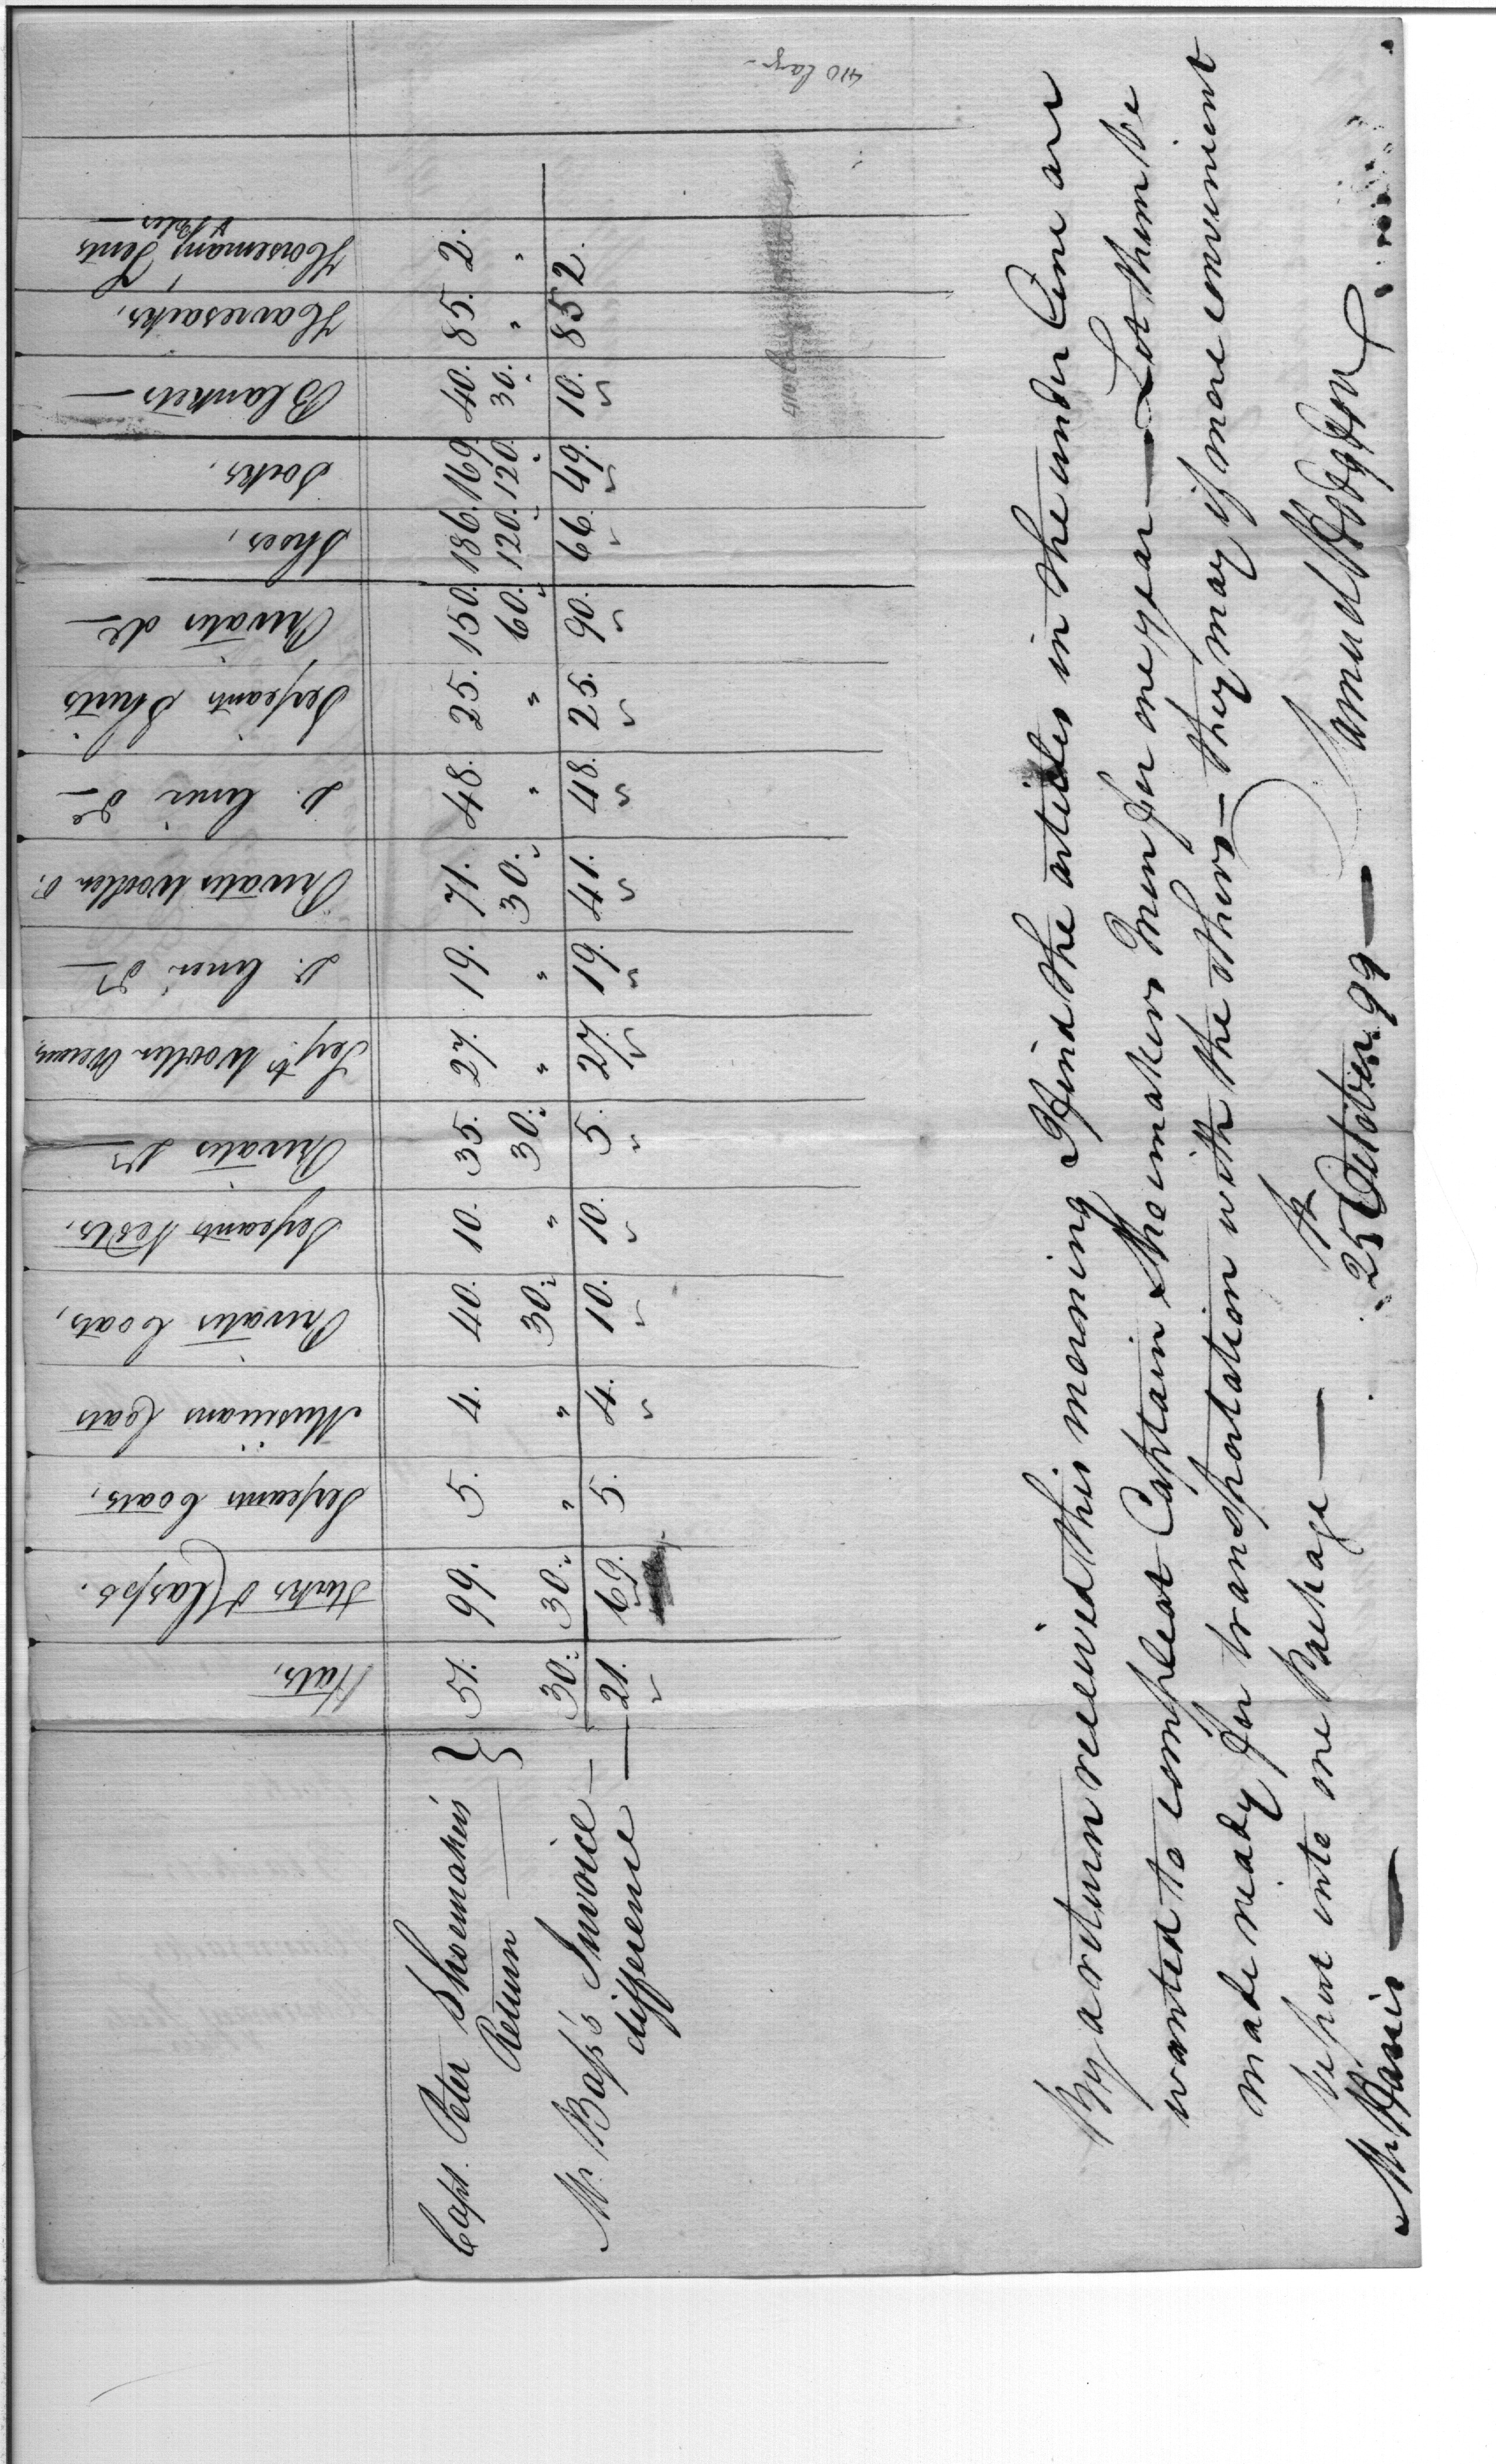 Hats, | Stocks & Clasps. | Serjeants Coats, | Musicians Coats | Privates Coats, | Serjeants Vests, | Privates Do | Serjts Woollen Overas, | Do. linen Do | Privates Woollen Os, | Do. linen do | Serjeants Shirts | Privates do | Shoes, | Socks, | Blankets | Havresacks, | Horsemans Tents & Poles
Capt. Peter Shoemakers Return } 51. | 99. | 5. | 4. | 40. | 10. | 35. | 27. | 19. | 71. | 48. | 25. | 150. | 186. | 169. | 40. | 85. | 2.
Mr. Bass's Invoice — 30. | 30. | " | " | 30. | " | 30. | " | " | 30. | " | " | 60. | 120. | 120. | 30. | " | "
difference — 21. | 69. | 5. | 4. | 10. | 10. | 5. | 27. | 19. | 41. | 48. | 25. | 90. | 66. | 49. | 10. | 85 | 2.
By a return received this morning I find the articles in the under line are
wanted to compleat Captain Shoemakers Men for one year — Let them be
made ready for transportation with the others — they may if more convenient
be put into one Package —
25th October 99 — Samuel Hodgdon
Mr Harris —